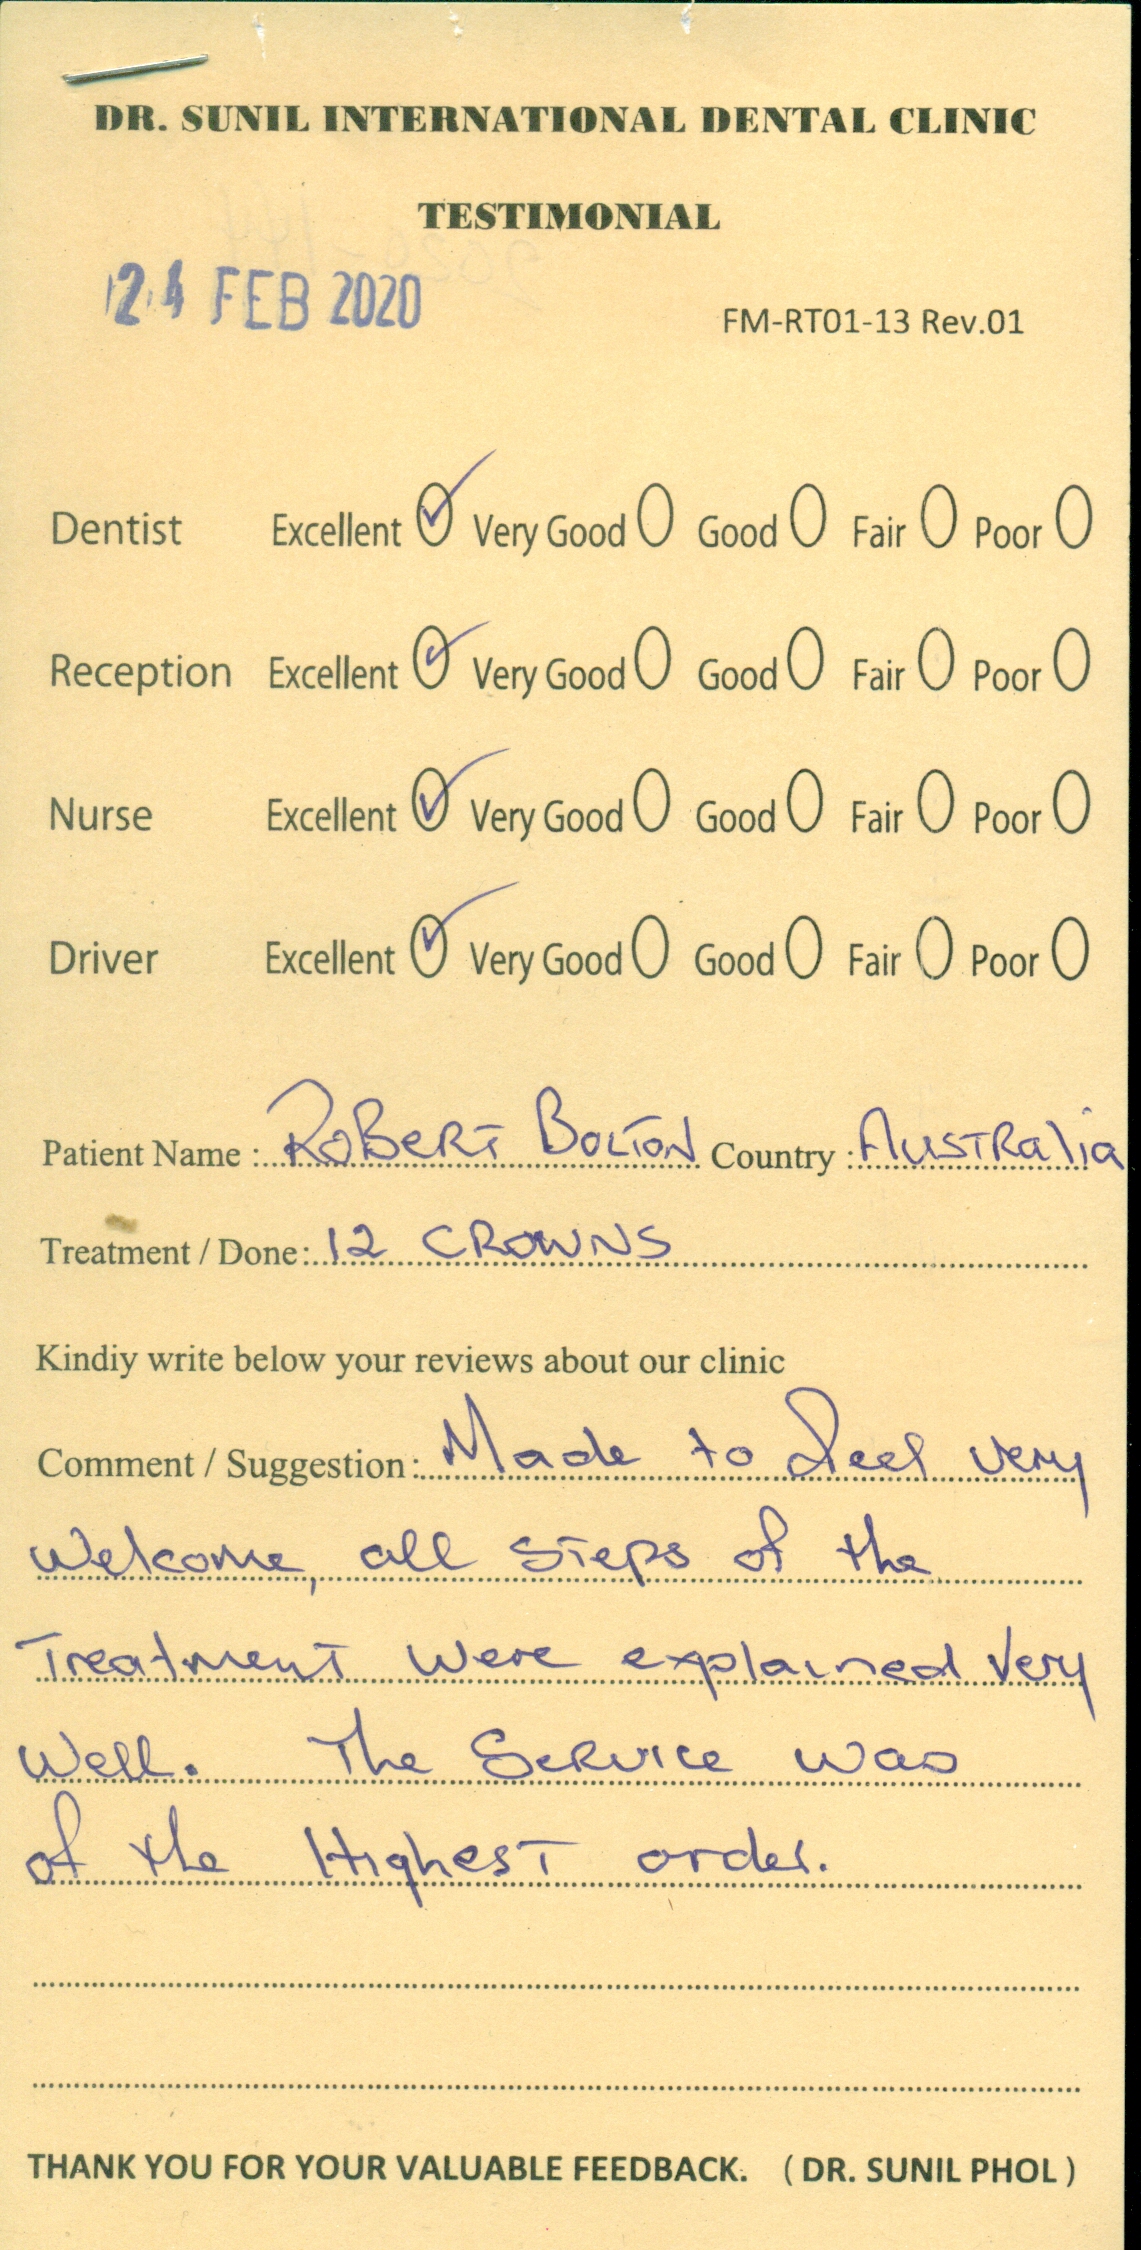 DR. SUNIL INTERNATIONAL DENTAL CLINIC
TESTIMONIAL
24 FEB 2020
FM-RT01-13 Rev.01
Dentist Excellent Very Good Good Fair Poor
Reception Excellent Very Good Good Fair Poor
Nurse Excellent Very Good Good Fair Poor
Driver Excellent Very Good Good Fair Poor
Patient Name : ROBERT BOLTON Country : AUSTRalia
Treatment / Done: 12 CROWNS
Kindiy write below your reviews about our clinic
Comment / Suggestion: Made to feel very
Welcome, all steps of the
Treatment were explained very
Well. The Service was
of the Highest order.
THANK YOU FOR YOUR VALUABLE FEEDBACK. ( DR. SUNIL PHOL )